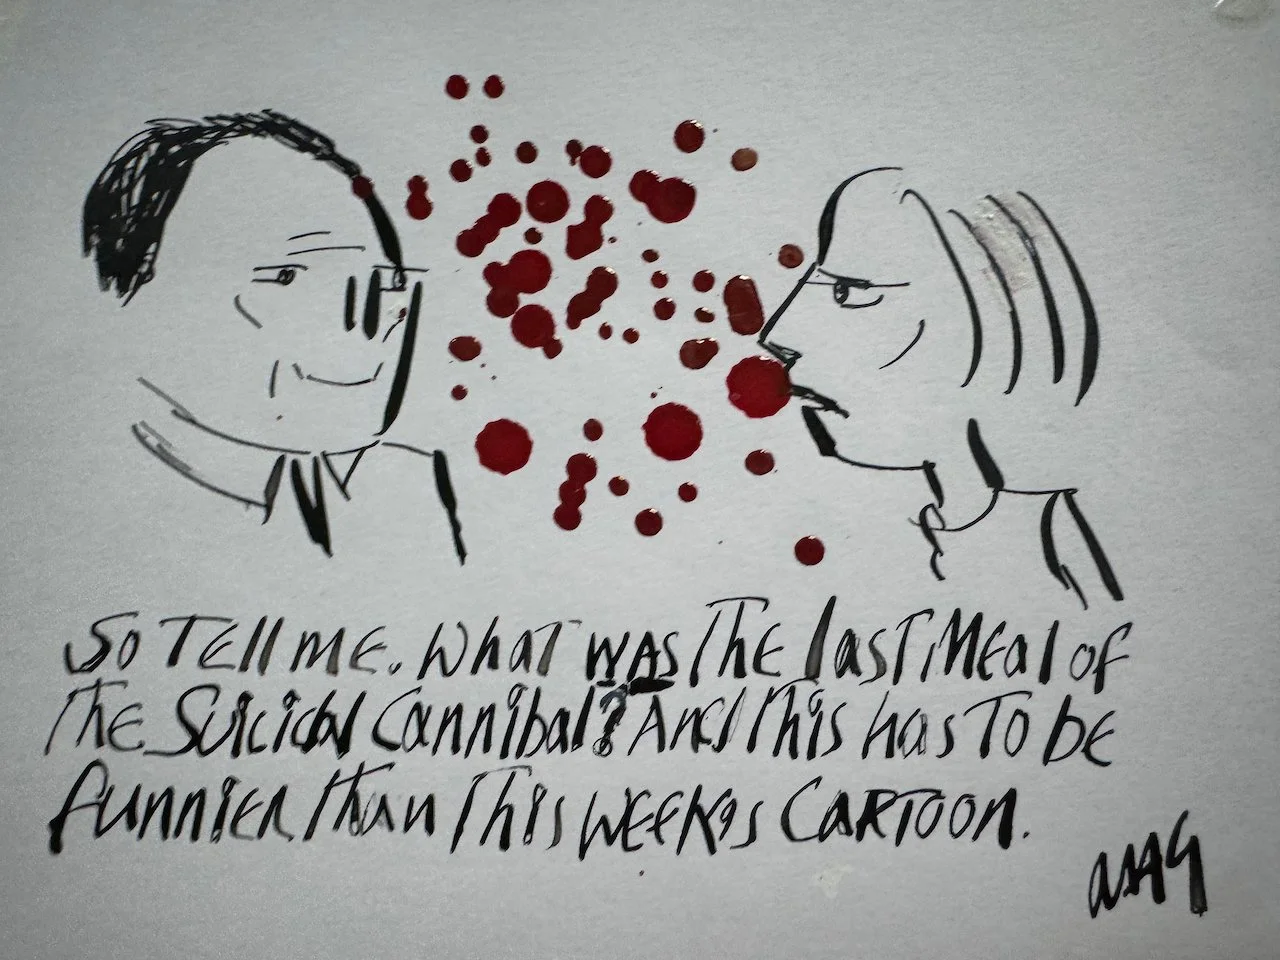 So Tell me. What was The last Meal of
The Suicidal Cannibal? And This has To be
funnier Than This weeks Cartoon.